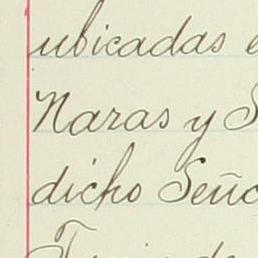 ubicadas e
Naras y S
dicho Seño